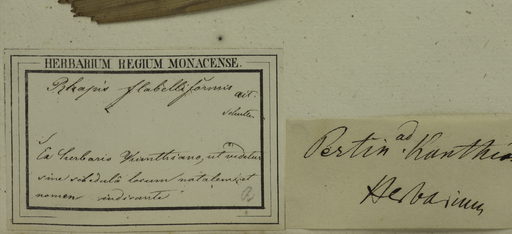 HERBARIUM REGIUM MONACENSE.
Rhapis flabelliformis ait.
Ex herbario Xanthiano, ut videtur
sine schedula locum natalem et
nomen indicante
Pertin. ad
Herbarium